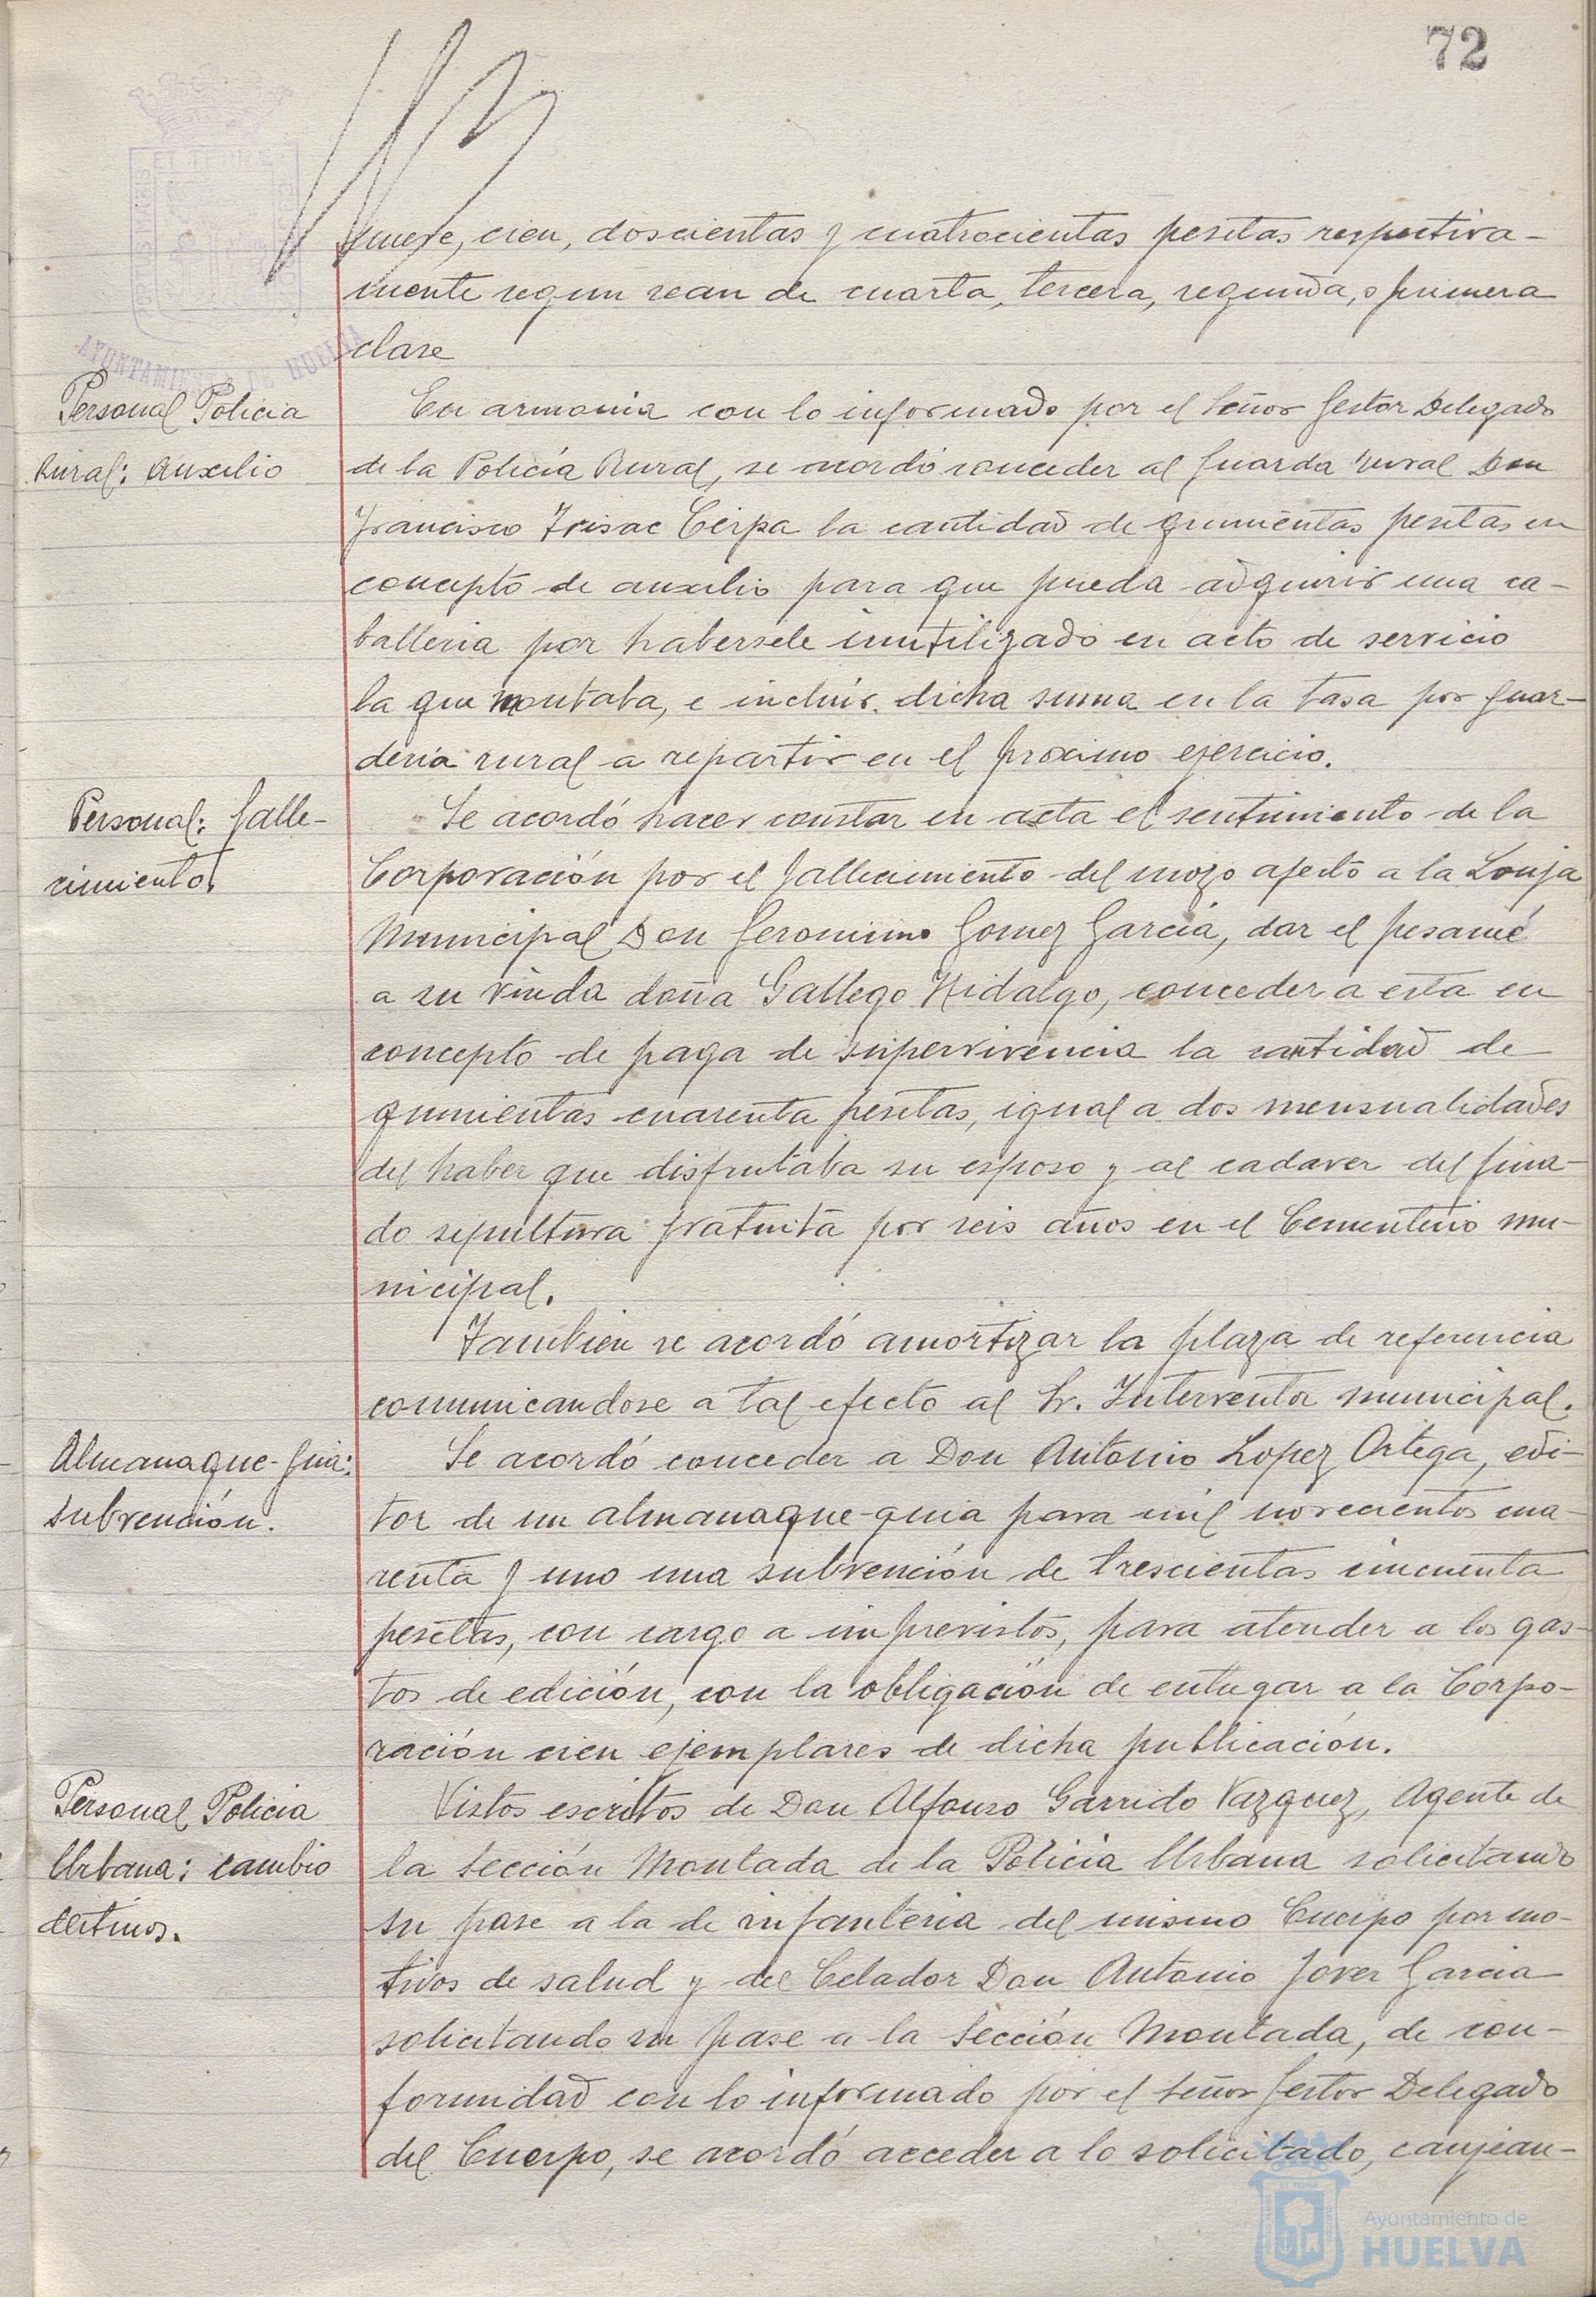 72
cien, doscientas y cuatrocientas pesetas respectiva-
mente segun sean de cuarta, tercera, segunda, o primera
clase
AYUNTAMIENTO DE HUELVA
Personal Policia
Rural: Auxilio
En armonia con lo informado por el Señor Gestor Delegado
de la Policía Rural, se acordó conceder al Guarda rural Don
Francisco la cantidad de quinientas pesetas en
concepto de auxilio para que pueda adquirir una ca-
balleria por habersele inutilizado en acto de servicio
la que montaba, e incluir dicha suma en la tasa por guar-
deria rural a repartir en el proximo ejercicio.
Personal: falle-
cimiento
Se acordó hacer constar en acta el sentimiento de la
Corporación por el fallecimiento del mozo afecto a la Lonja
Municipal Don Geronimo Gomez García, dar el pesamé
a su viuda doña Gallego Hidalgo, conceder a esta en
concepto de paga de supervivencia la cantidad de
quinientas cuarenta pesetas, igual a dos mensualidades
del haber que disfrutaba su esposo y al cadaver del fina-
do sepultura gratuita por seis años en el Cementerio mu-
nicipal.
Tambien se acordó amortizar la plaza de referencia
comunicandose a tal efecto al Sr. Interventor municipal.
Almanaque-guia:
subvención.
Se acordó conceder a Don Antonio Lopez Ortega, edi-
tor de un almanaque-guia para mil novecientos cua-
renta y uno una subvención de trescientas cincuenta
pesetas, con cargo a imprevistos, para atender a los gas-
tos de edición, con la obligación de entregar a la Corpo-
ración cien ejemplares de dicha publicación.
Personal Policia
Urbana: cambio
destinos.
Vistos escritos de Don Alfonso Garrido Vazquez, Agente de
la Sección Montada de la Policia Urbana solicitando
su pase a la de infanteria del mismo Cuerpo por mo-
tivos de salud y del Celador Don Antonio Jover Garcia
solicitando su pase a la Sección Montada, de con-
formidad con lo informado por el Señor Gestor Delegado
del Cuerpo, se acordó acceder a lo solicitado, canjean-
Ayuntamiento de
HUELVA